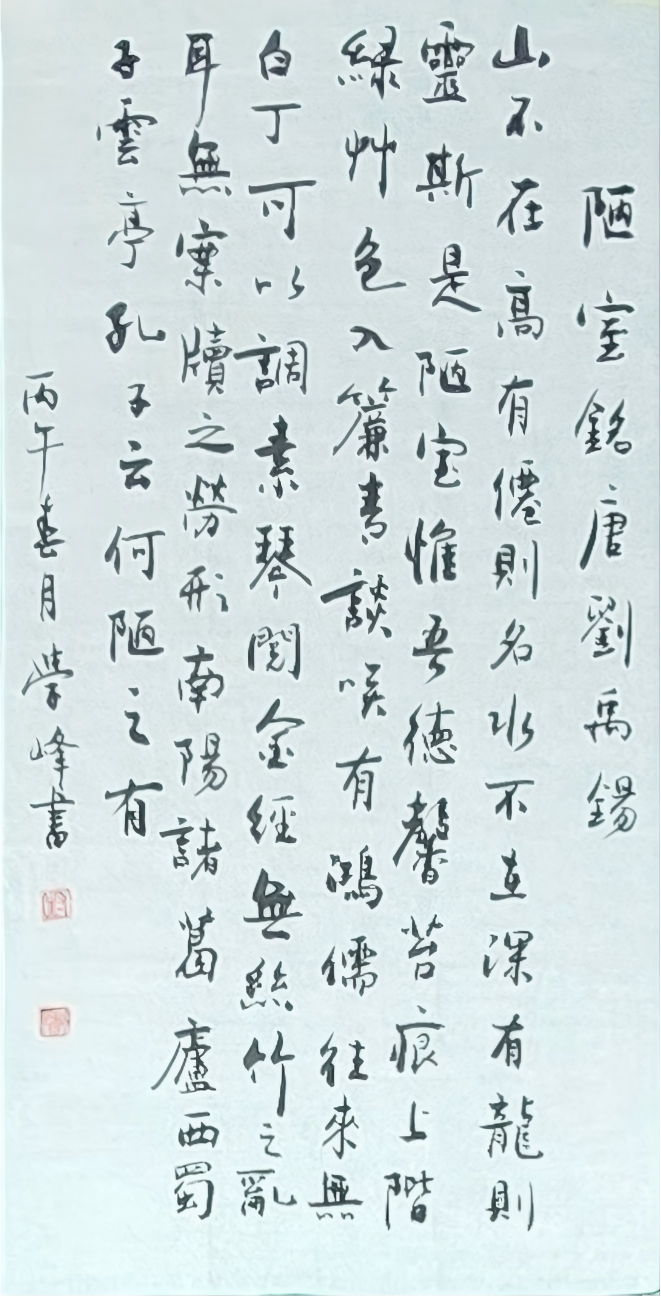 陋室銘唐劉禹錫
山不在高有僊則名水不在深有龍則
靈斯是陋室惟吾德馨苔痕上階
綠艸色入簾青談咲有鴻儒往來無
白丁可以調素琴閱金經無絲竹之亂
耳無案牘之勞形南陽諸葛廬西蜀
子雲亭孔子云何陋之有
丙午春月學峰書